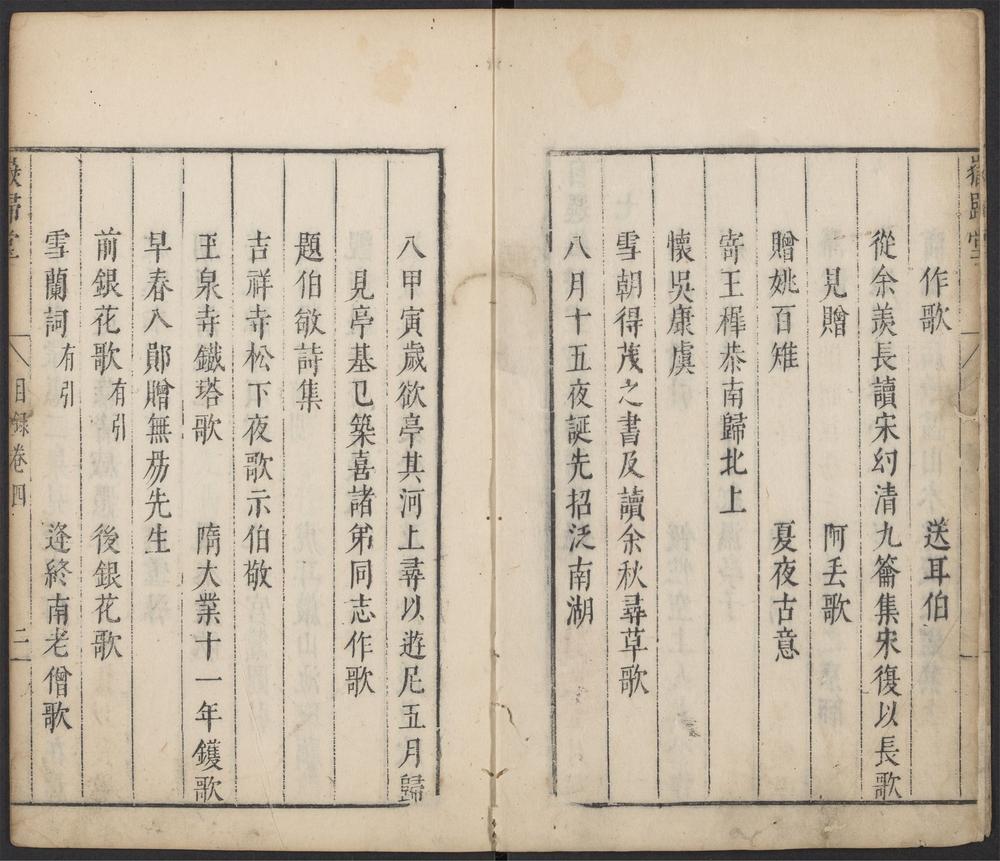 嶽歸堂
作歌　送耳伯
從余羨長讀宋幻清九籥集宋復以長歌
見贈　阿丢歌
贈姚百雉　夏夜古意
寄王穉恭南歸北上
懷吳康虞
雪朝得茂之書及讀余秋尋草歌
八月十五夜誕先招泛南湖
八甲寅歲欲亭其河上尋以遊尼五月歸
見亭基已築喜諸弟同志作歌
題伯敏詩集
吉祥寺松下夜歌示伯敬
玉泉寺鐵塔歌　隋大業十一年鑊歌
早春入鄖贈無易先生
前銀花歌有引　後銀花歌
雪蘭詞有引　逢終南老僧歌
嶽歸堂　目録卷四　二